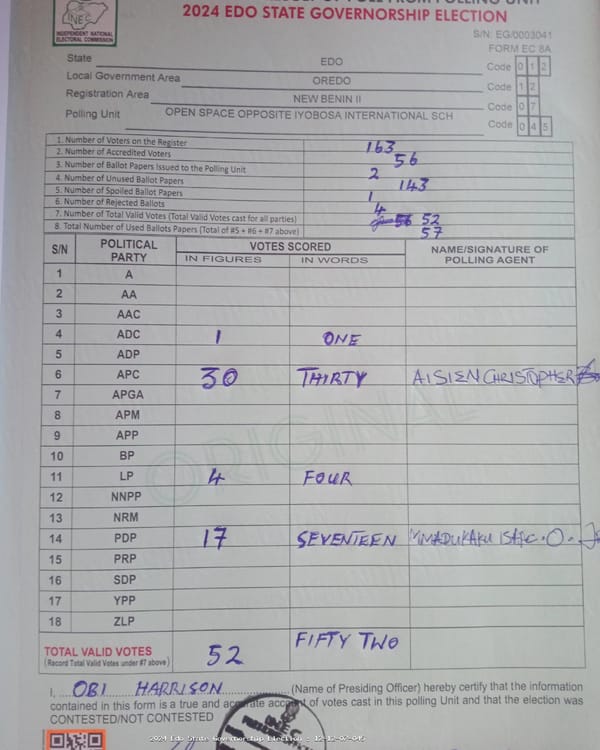 2024 EDO STATE GOVERNORSHIP ELECTION
INEC
INDEPENDENT NATIONAL
ELECTORAL COMMISSION
S/N: EG/0003041
FORM EC 8A
State EDO Code 0 1 2
Local Government Area OREDO Code 1 2
Registration Area NEW BENIN II Code 0 7
Polling Unit OPEN SPACE OPPOSITE IYOBOSA INTERNATIONAL SCH Code 0 4 5
1. Number of Voters on the Register 163
2. Number of Accredited Voters 56
3. Number of Ballot Papers Issued to the Polling Unit 2
4. Number of Unused Ballot Papers 143
5. Number of Spoiled Ballot Papers 1
6. Number of Rejected Ballots 4
7. Number of Total Valid Votes (Total Valid Votes cast for all parties) 56 52
8. Total Number of Used Ballots Papers (Total of #5 + #6 + #7 above) 57
S/N POLITICAL PARTY VOTES SCORED NAME/SIGNATURE OF POLLING AGENT
IN FIGURES IN WORDS
1 A
2 AA
3 AAC
4 ADC 1 ONE
5 ADP
6 APC 30 THIRTY AISIEN CHRISTOPHER
7 APGA
8 APM
9 APP
10 BP
11 LP 4 FOUR
12 NNPP
13 NRM
14 PDP 17 SEVENTEEN
15 PRP
16 SDP
17 YPP
18 ZLP
ORIGINAL
TOTAL VALID VOTES 52 FIFTY TWO
(Record Total Valid Votes under #7 above)
I, OBI HARRISON (Name of Presiding Officer) hereby certify that the information
contained in this form is a true and accurate account of votes cast in this polling Unit and that the election was
CONTESTED/NOT CONTESTED
2024 Edo State Governorship Election - 12-12-07-045